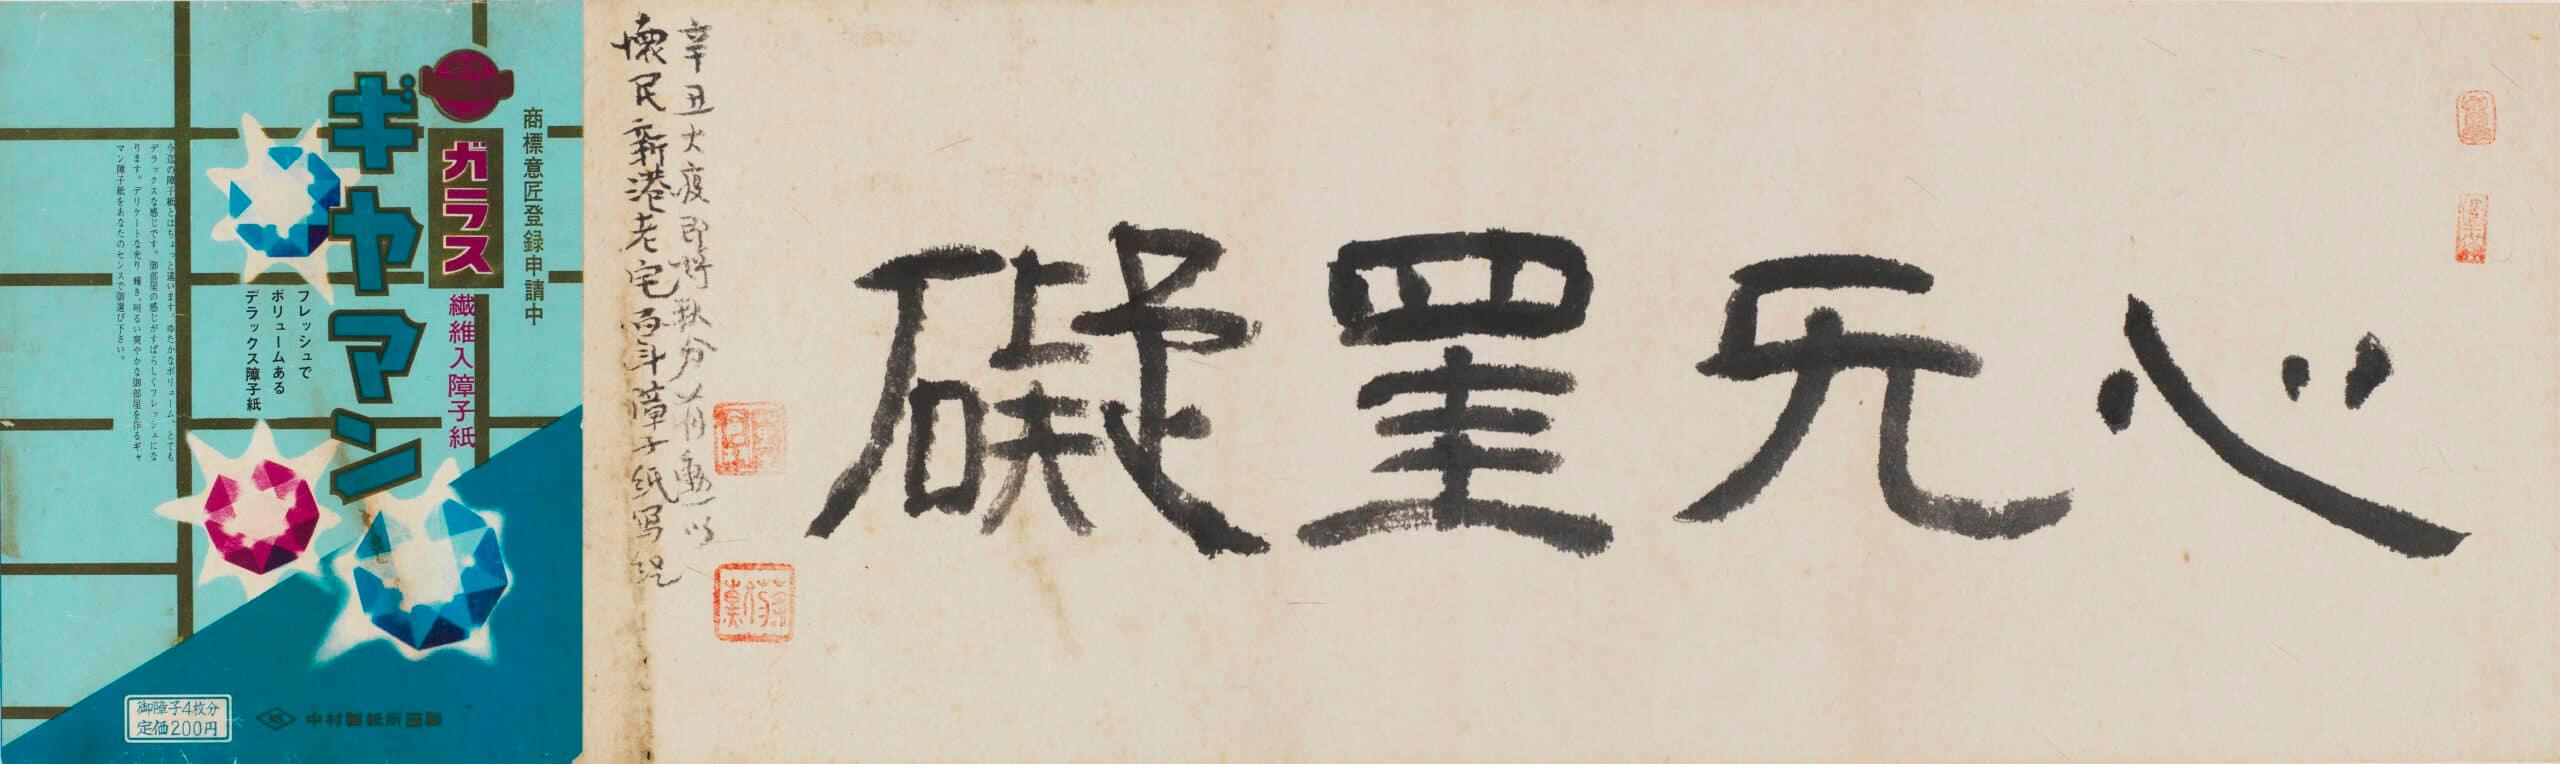 心无罣礙
辛丑大疫即將秋分蔣勳以
懷民新港老宅百斗障子紙写経
商標意匠登録申請中
ガラス
繊維入障子紙
ギヤマン
フレッシュで
ボリュームある
デラックス障子紙
今迄の障子紙とはちょっと違います。ゆたかなボリューム、とても
デラックスな感じです。御部屋の感じがすばらしくフレッシュにな
ります。デリケートな光り 輝き、明るい爽やかな御部屋を作るギャ
マン障子紙をあなたのセンスで御選び下さい。
御障子4枚分
定価200円
NS 中村製紙所謹製